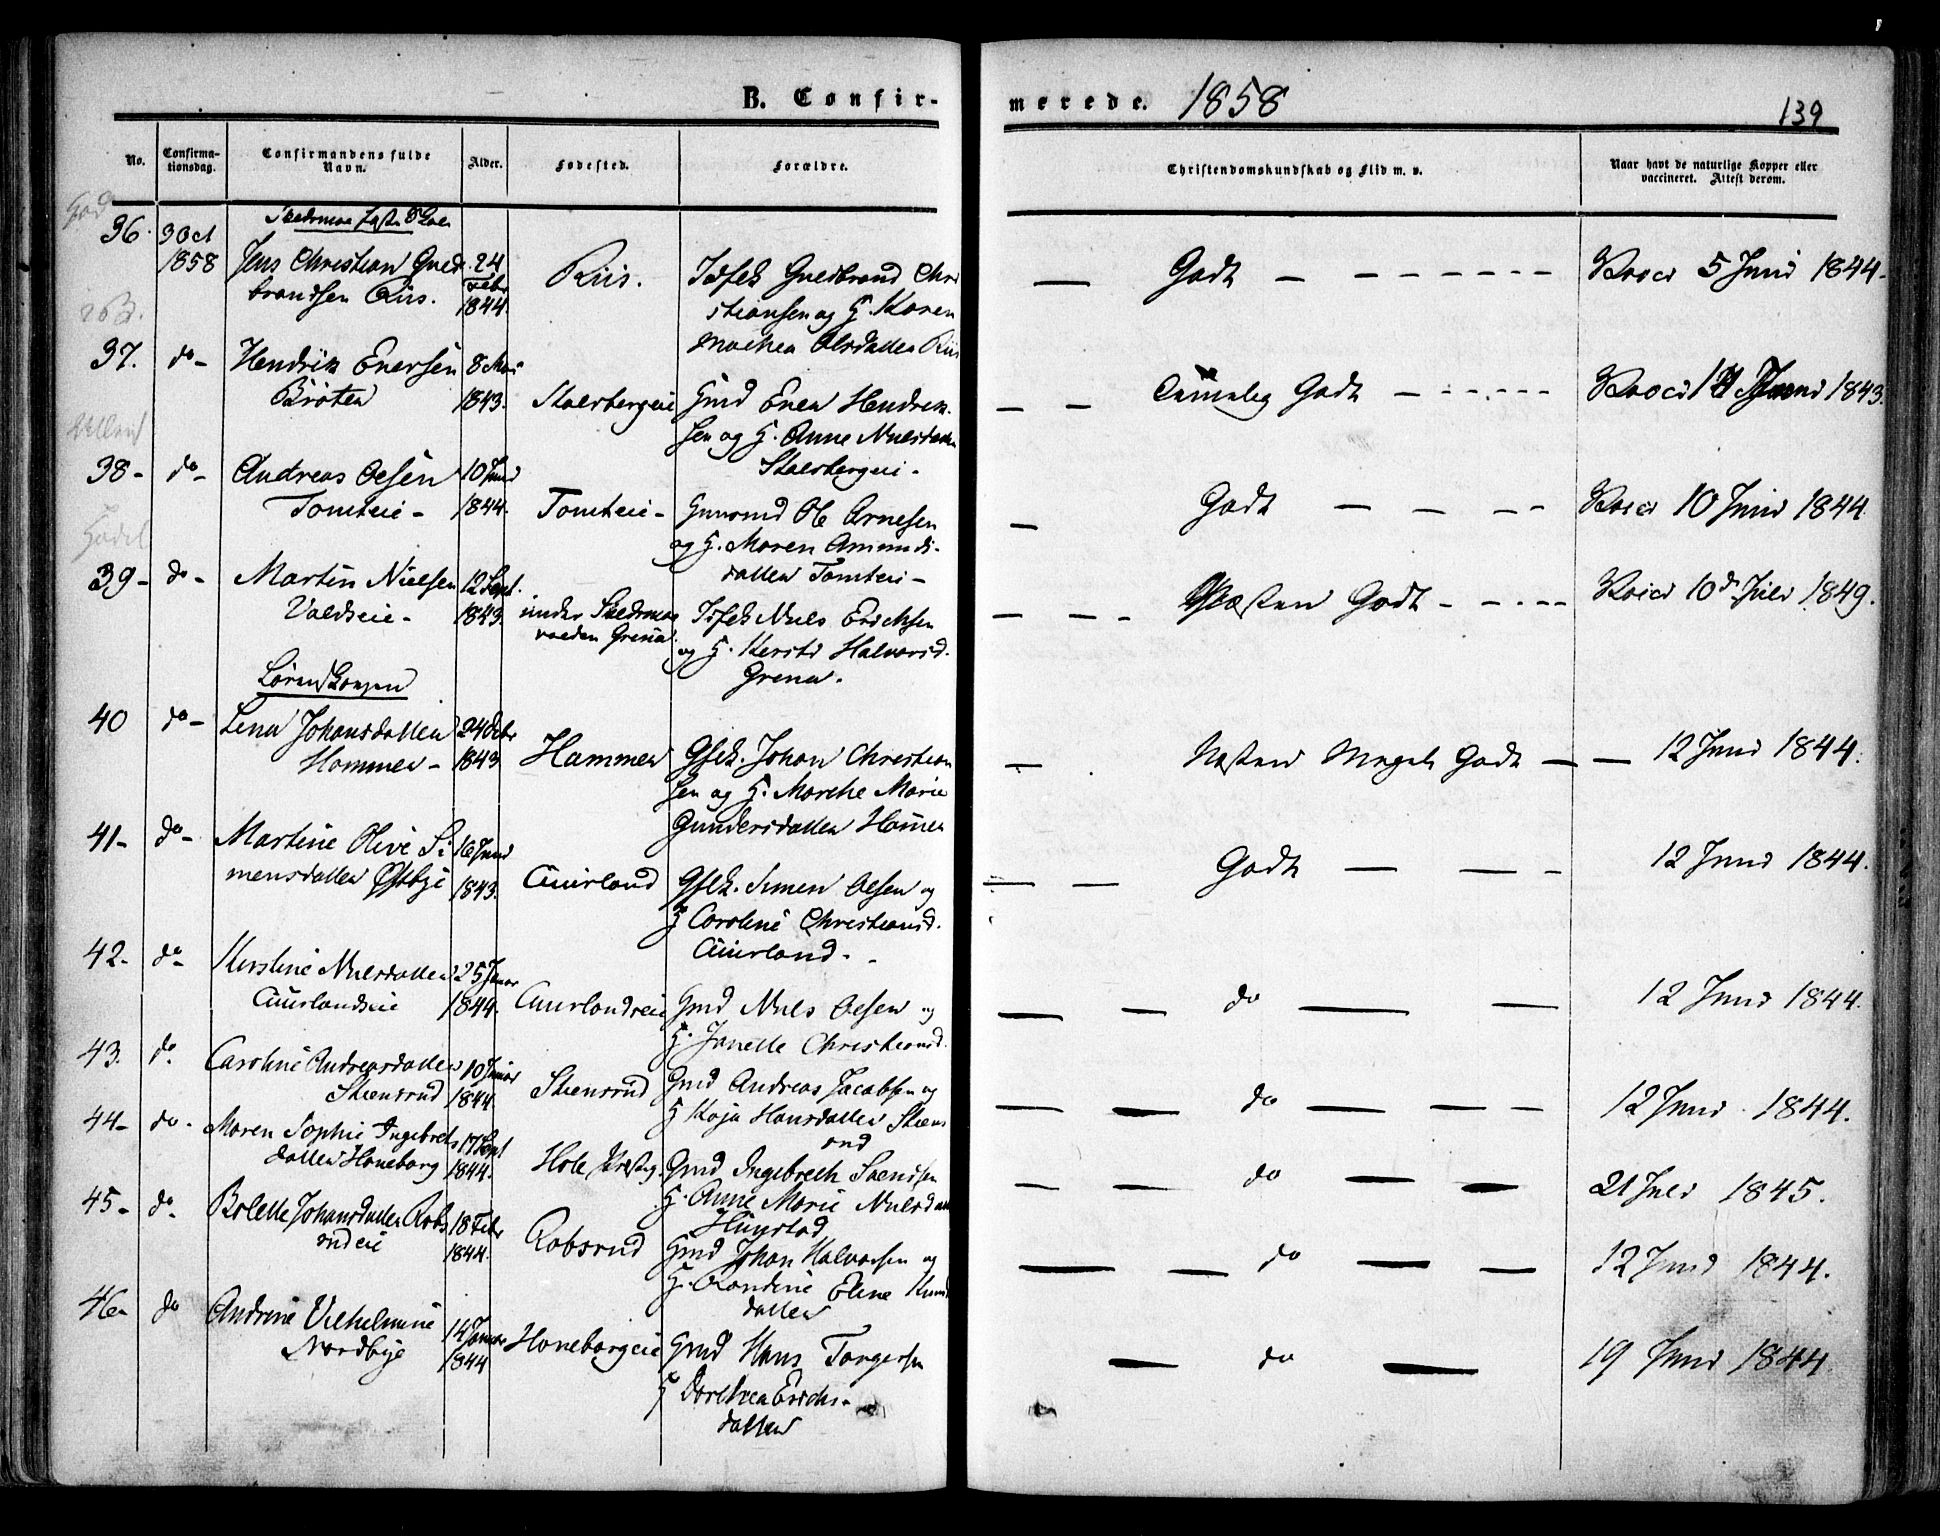 B. Confir-
merede. 1858
139
No.
Confirma-
tionsdag.
Confirmandens fulde
Navn.
Alder.
Fødested.
Forældre.
Christendomskundskab og Flid m. v.
Naar havt de naturlige Kopper eller
vaccineret. Attest derom.
36. 3 Oct
1858 Jens Christian Guld-
brandsen Riis.
24
1844.
Riis.
Guldbrand Chri
stiansen og H. Karen
Mathea Olsdatter Riis
Godt
5 Juni 1844.
37. do Hendrik Evensen
Bröten
8 Mai
1843.
Stalsbergeie
Gmd Even Hendrik-
sen og H. Anne Nielsdatter
Stalsbergeie
Temelig Godt
Juni 1843.
38 do Andreas Olsen
Tomteie
10 Juni
1844.
Tomteie
Ole Arnesen
og H. Maren Amunds-
datter Tomteie
Godt
10 Juni 1844
39 do Martin Nielsen
Valdseie
12 Sept.
1843.
under Skedsmo
Grena
Niels Erichsen
og H. Kersti Halvorsd.
Grena.
Næsten Godt
10d Juli 1849.
Lørenskogen
40 do Lena Johansdatter
Hammer
24 Debr
1843
Hammer
Johan Christian
sen og H. Marthe Marie
Gundersdatter Hamer
Næsten Meget Godt
12 Juni 1844.
41 do Martine Olive Si-
mensdatter Østbye
16 Juni
1843.
Aurland
Simen Olsen og
H Caroline Christiansd.
Aurland.
Godt
12 Juni 1844.
42. do Kirstine Nielsdatter
Aurlandseie
25 Januar
1844.
Aurlandseie
Gmd Niels Olsen og
H. Janette Christiansd.
do
12 Juni 1844.
43. do. Caroline Andreasdatter
Steensrud
10 Januar
1844.
Steensrud
Gmd Andreas Jacobsen og
H Kaja Hansdatter Steens
rud
do
12 Juni 1844.
44 do. Maren Sophie Ingebrets
datter Haneborg
17 Sept
1844.
Hole Præstg.
Gmd Ingebreth Svendsen
H. Anne Marie Nielsdatter
do
21 Juli 1845.
45 do. Bolette Johansdatter Robs
rudeie
18 Febr
1844.
Robsrud
Gmd Johan Halvorsen og
H. Randine Eline Knuds
datter
do
12 Juni 1844.
46 do Andrine Vilhelmine
Nordbye
14 Januar
1844
Haneborgeie
Gmd Hans Torgersen
H Dorthea Erichs-
datter
do
19 Juni 1844.